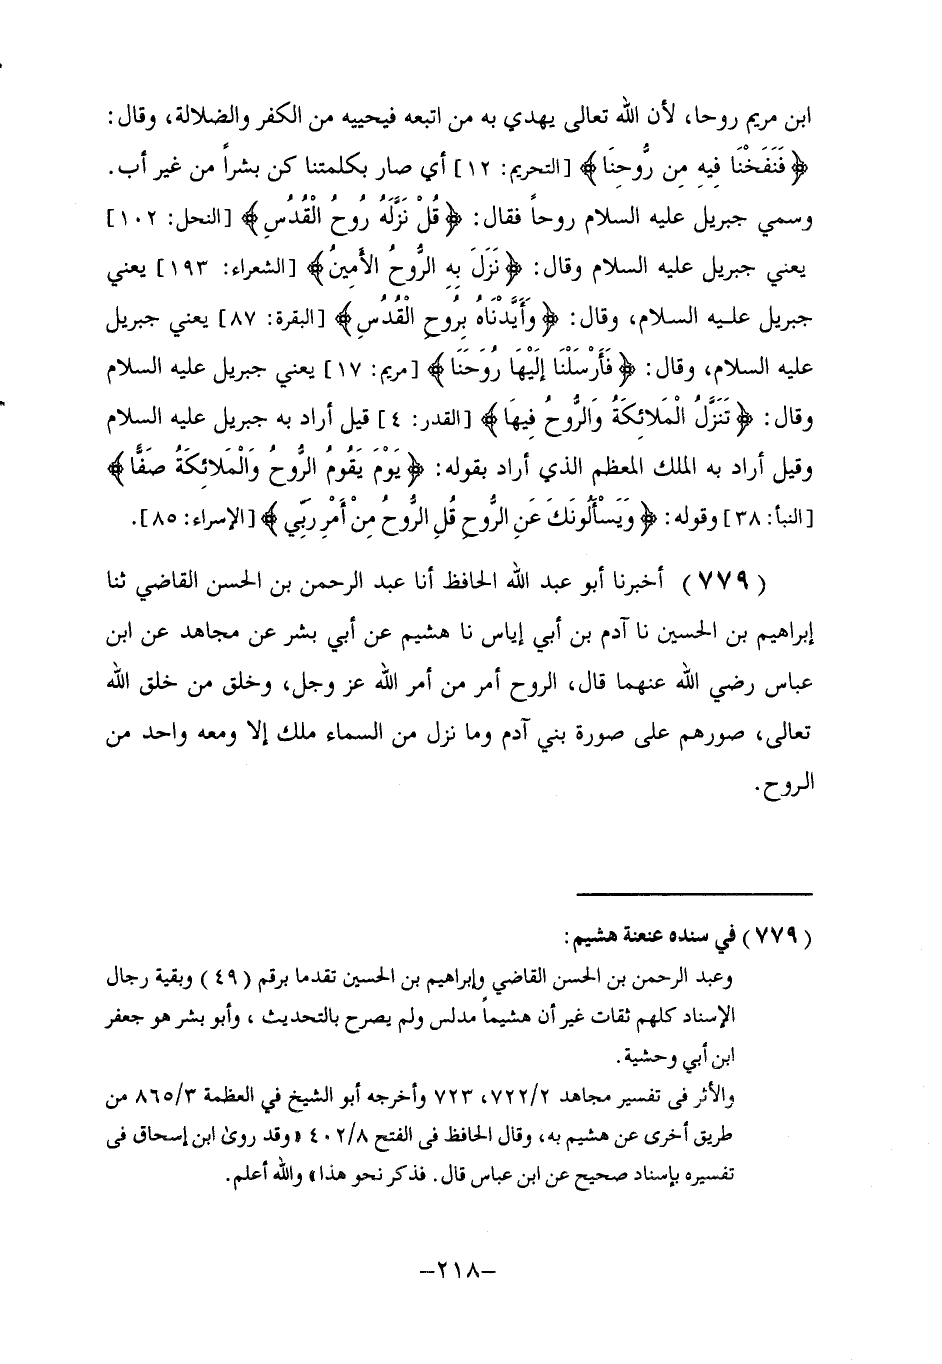 ابن مريم روحا، لأن الله تعالى يهدي به من اتبعه فيحييه من الكفر والضلالة، وقال:
﴿فَنَفَخْنَا فِيهِ مِن رُّوحِنَا﴾ [التحريم: ١٢] أي صار بكلمتنا كن بشراً من غير أب.
وسمي جبريل عليه السلام روحاً فقال: ﴿قُلْ نَزَّلَهُ رُوحُ الْقُدُسِ﴾ [النحل: ١٠٢]
يعني جبريل عليه السلام وقال: ﴿نَزَلَ بِهِ الرُّوحُ الأَمِينُ﴾ [الشعراء: ١٩٣] يعني
جبريل عليه السلام، وقال: ﴿وَأَيَّدْنَاهُ بِرُوحِ الْقُدُسِ﴾ [البقرة: ٨٧] يعني جبريل
عليه السلام، وقال: ﴿فَأَرْسَلْنَا إِلَيْهَا رُوحَنَا﴾ [مريم: ١٧] يعني جبريل عليه السلام
وقال: ﴿تَنَزَّلُ الْمَلائِكَةُ وَالرُّوحُ فِيهَا﴾ [القدر: ٤] قيل أراد به جبريل عليه السلام
وقيل أراد به الملك المعظم الذي أراد بقوله: ﴿يَوْمَ يَقُومُ الرُّوحُ وَالْمَلائِكَةُ صَفًّا﴾
[النبأ: ٣٨] وقوله: ﴿وَيَسْأَلُونَكَ عَنِ الرُّوحِ قُلِ الرُّوحُ مِنْ أَمْرِ رَبِّي﴾ [الإسراء: ٨٥].
(٧٧٩) أخبرنا أبو عبد الله الحافظ أنا عبد الرحمن بن الحسن القاضي ثنا
إبراهيم بن الحسين نا آدم بن أبي إياس نا هشيم عن أبي بشر عن مجاهد عن ابن
عباس رضي الله عنهما قال، الروح أمر من أمر الله عز وجل، وخلق من خلق الله
تعالى، صورهم على صورة بني آدم وما نزل من السماء ملك إلا ومعه واحد من
الروح.
(٧٧٩) في سنده عنعنة هشيم:
وعبد الرحمن بن الحسن القاضي وإبراهيم بن الحسين تقدما برقم (٤٩) وبقية رجال
الإسناد كلهم ثقات غير أن هشيماً مدلس ولم يصرح بالتحديث، وأبو بشر هو جعفر
ابن أبي وحشية.
والأثر فى تفسير مجاهد ٧٢٢/٢، ٧٢٣ وأخرجه أبو الشيخ في العظمة ٨٦٥/٣ من
طريق أخرى عن هشيم به، وقال الحافظ فى الفتح ٤٠٢/٨ «وقد روىٰ ابن إسحاق فى
تفسيره بإسناد صحيح عن ابن عباس قال. فذكر نحو هذا» والله أعلم.
-٢١٨-